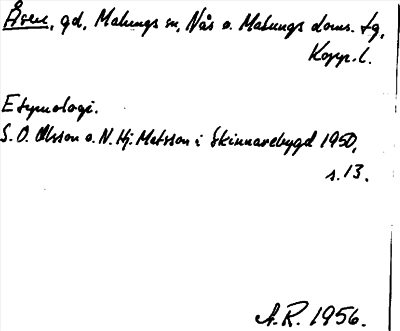 Åsen, gd, Malungs sn, Nås o. Malungs doms. tg,
Kopp. l.
Etymologi.
S. O. Olsson o. N. Hj. Matsson i Skinnarebygd 1950,
s. 13.
A. R. 1956.